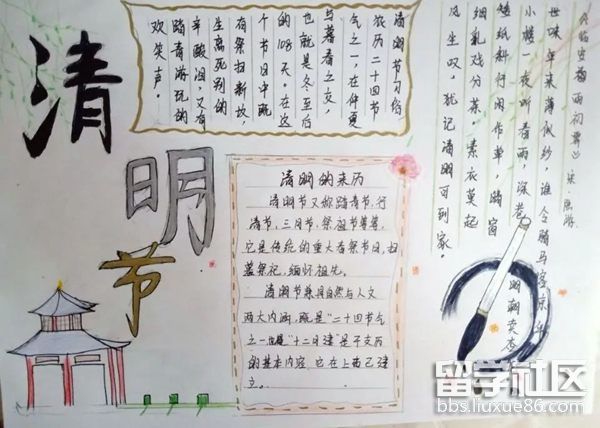 清
明
节
清明节习俗
农历二十四节
气之一,在仲夏
与暮春之交,
也就是冬至后
的108天。在这
个节日中既
有祭扫新坟,
生离死别的
辛酸泪,又有
踏青游玩的
欢笑声。
《临安春雨初霁》 宋 陆游
世味年来薄似纱,谁令骑马客京华
小楼一夜听春雨,深巷明朝卖杏
矮纸斜行闲作草,晴窗
细乳戏分茶。素衣莫起
风生叹,犹记清明可到家。
清明的来历
清明节又称踏青节,行
清节,三月节,祭祖节等等,
它是传统的重大春祭节日,扫
墓祭祀,缅怀祖先。
清明节兼具自然与人文
两大内涵,既是“二十四节气
之一也是“十二月建”是干支历
的基本内容,它在上古已建
立。
留学社区
bbs.liuxue86.com